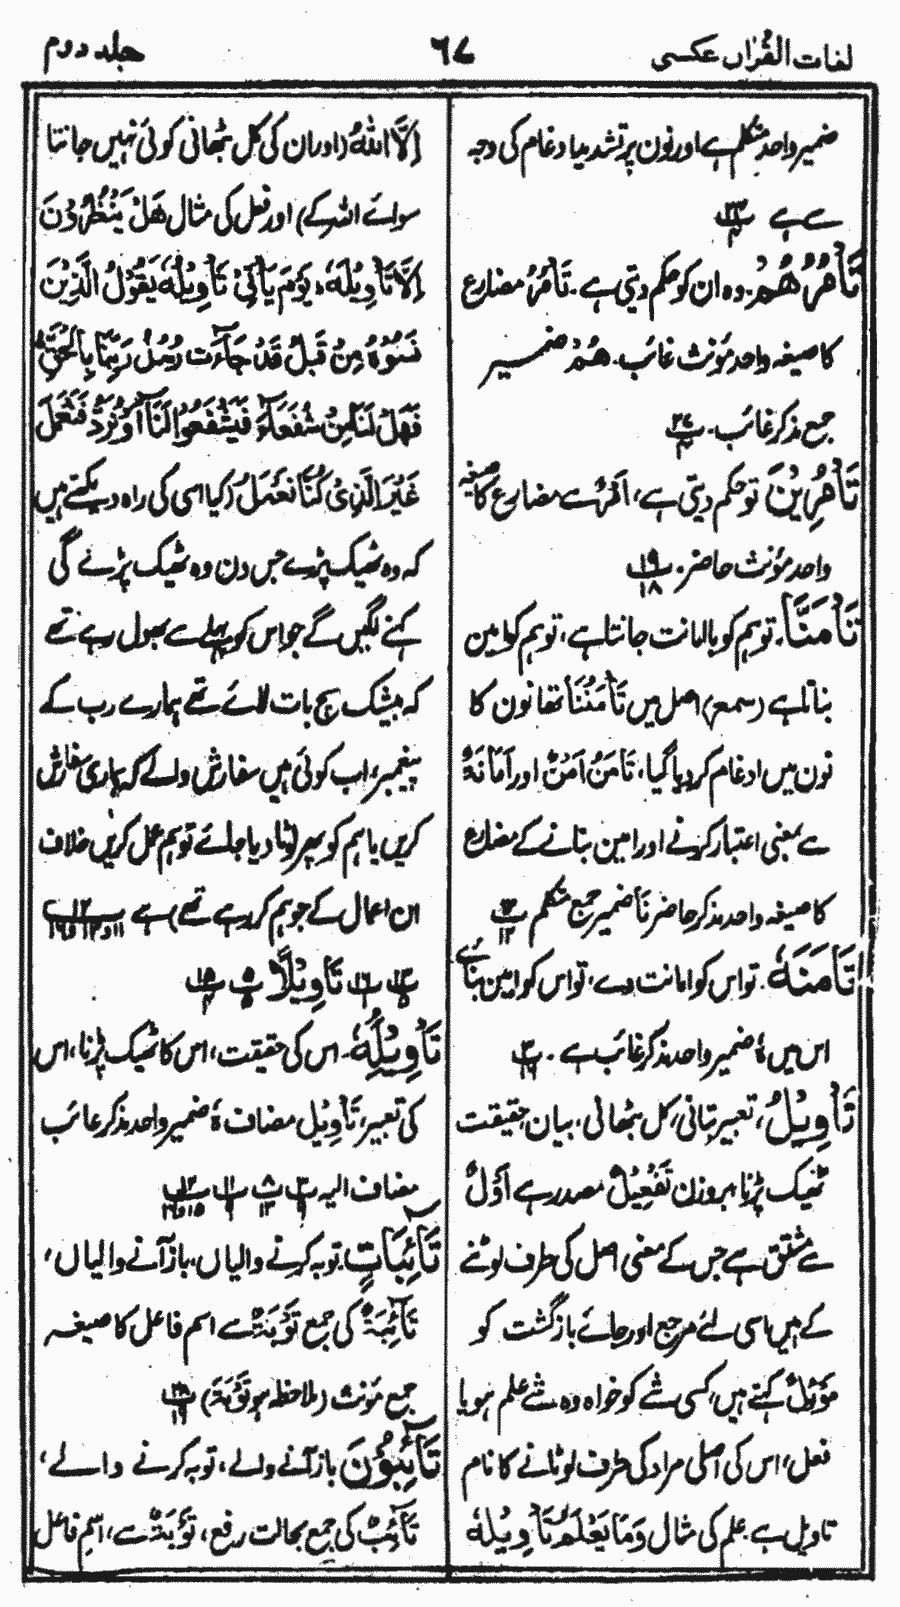 لغات القرآن عکسی
٦٧
جلد دوم
ضمیر واحد متکلم ہے اور نون پر تشدید ادغام کی وجہ
سے ہے
تَأْمُرُهُمْ۔ وہ ان کو حکم دیتی ہے۔ تَأْمُرُ مضارع
کا صیغہ واحد مؤنث غائب۔ هُمْ ضمیر
جمع مذکر غائب۔
تَأْمُرِيْنَ تو حکم دیتی ہے، اَمْرٌ سے مضارع کا صیغہ
واحد مؤنث حاضر۔ ١٩ ١٨
تَأْمَنَّا۔ تو ہم کو باامانت جانتا ہے، تو ہم کو امین
بناتا ہے (سمع) اصل میں تَأْمَنُنَا تھا نون کا
نون میں ادغام کر دیا گیا، تَأْمَنُ اَمْنٌ اور اَمَانَةٌ
سے بمعنی اعتبار کرنے اور امین بنانے کے مضارع
کا صیغہ واحد مذکر حاضر نَا ضمیر جمع متکلم ١٢
تَأْمَنْهُ۔ تو اس کو امانت دے، تو اس کو امین بنائے
اس میں هُ ضمیر واحد مذکر غائب ہے۔
تَأْوِيْلُ، تعبیر بتانی، کل بٹھانی، بیان حقیقت
ٹھیک پڑنا بروزن تَفْعِيْلٌ مصدر ہے اَوْلٌ
سے مشتق ہے جس کے معنی اصل کی طرف لوٹنے
کے ہیں، اسی لئے مرجع اور جائے بازگشت کو
مَوْئِلٌ کہتے ہیں، کسی شے کو خواہ وہ شے علم ہو یا
فعل، اس کی اصلی مراد کی طرف لوٹانے کا نام
تاویل ہے۔ علم کی مثال وَمَا يَعْلَمُ تَأْوِيْلَهٗ
اِلَّا اللهُ (اور ان کی کل بٹھانی کوئی نہیں جانتا
سوائے اللہ کے) اور فعل کی مثال هَلْ يَنْظُرُوْنَ
اِلَّا تَأْوِيْلَهٗ، يَوْمَ يَأْتِيْ تَأْوِيْلُهٗ يَقُوْلُ الَّذِيْنَ
نَسُوْهُ مِنْ قَبْلُ قَدْ جَآءَتْ رُسُلُ رَبِّنَا بِالْحَقِّ
فَهَلْ لَّنَا مِنْ شُفَعَآءَ فَيَشْفَعُوْا لَنَآ اَوْ نُرَدُّ فَنَعْمَلَ
غَيْرَ الَّذِيْ كُنَّا نَعْمَلُ (کیا اسی کی راہ دیکھتے ہیں
کہ وہ ٹھیک پڑے جس دن وہ ٹھیک پڑے گی
کہنے لگیں گے جو اس کو پہلے سے بھول رہے تھے
کہ بیشک سچ بات لائے تھے ہمارے رب کے
پیغمبر، اب کوئی ہیں سفارش والے کہ ہماری سفارش
کریں یا ہم کو پھر لوٹا دیا جائے تو ہم عمل کریں خلاف
ان اعمال کے جو ہم کر رہے تھے) ہے
تَأْوِيْلًا
تَأْوِيْلُهٗ۔ اس کی حقیقت، اس کا ٹھیک پڑنا، اس
کی تعبیر، تَأْوِيْلُ مضاف هٗ ضمیر واحد مذکر غائب
مضاف الیہ
تَآئِبَاتٍ۔ توبہ کرنے والیاں، باز آنے والیاں،
تَآئِبَةٌ کی جمع تَوْبَةٌ سے اسم فاعل کا صیغہ
جمع مؤنث (ملاحظہ ہو تَوْبَةً)
تَآئِبُوْنَ باز آنے والے، توبہ کرنے والے،
تَآئِبٌ کی جمع بحالت رفع، تَوْبَةٌ سے، اسم فاعل